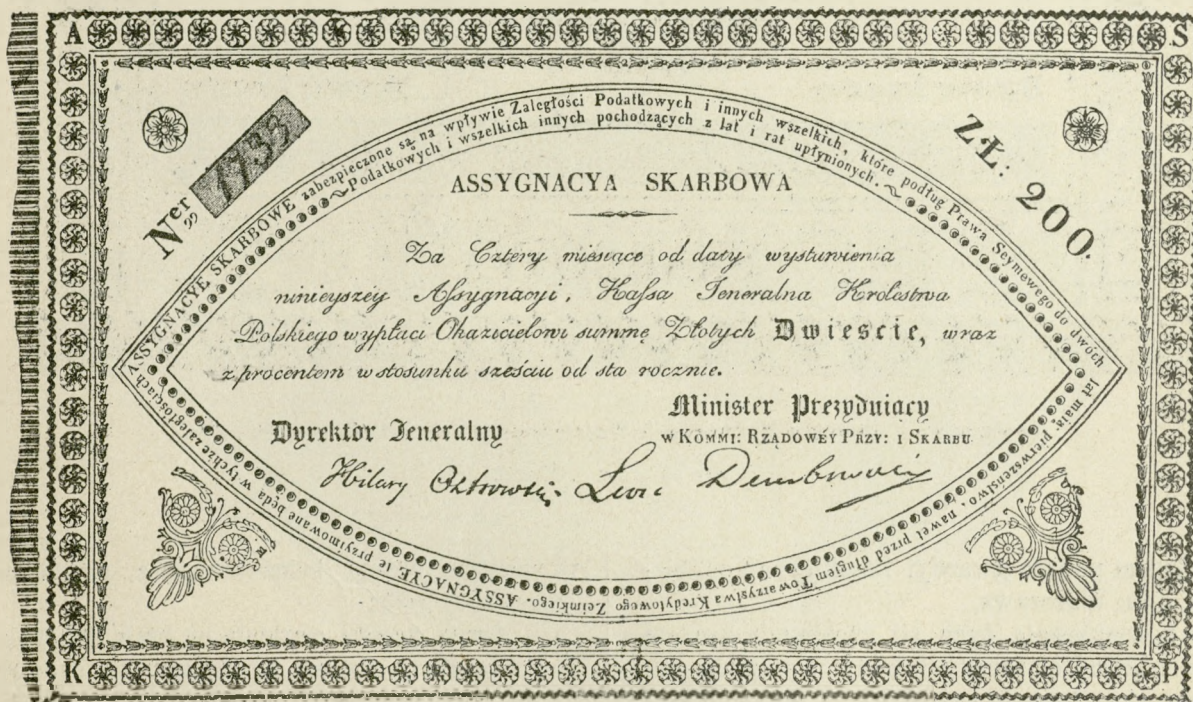 A S
Nᵉʳ „ 1733
ZŁ: 200.
ASSYGNACYE SKARBOWE zabezpieczone są na wpływie Zaległości Podatkowych i innych wszelkich, które podług Prawa Seymewego do dwóch lat maią pierwszenstwo, nawet przed długiem Towarzystwa Kredytowego Zeimkiego. ASSYGNACYE te przyimowane będą w tychże zaległościach
Podatkowych i wszelkich innych pochodzących z lat i rat upłynionych.
ASSYGNACYA SKARBOWA
Za Cztery miesiące od daty wystawienia
ninieyszey Assygnacyi, Kassa Jeneralna Krolestwa
Polskiego wypłaci Okazicielowi summę Złotych Dwieście, wraz
z procentem w stosunku sześciu od sta rocznie.
Dyrektor Jeneralny
Minister Prezyduiący
w Kommi: Rządowéy Przy: i Skarbu
Hilary Ostrowski Leon Dembowski
K P